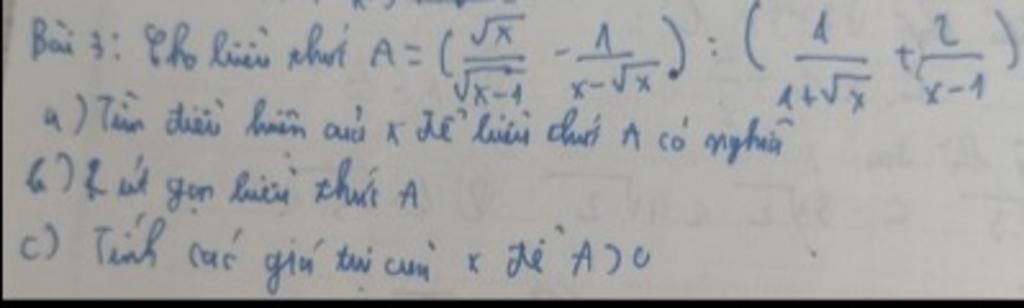 Bài 3: Cho biểu thức A = (√x/√x-1 - 1/x-√x) : (1/1+√x + 2/x-1)
a) Tìm điều kiện của x để biểu thức A có nghĩa
b) Rút gọn biểu thức A
c) Tính các giá trị của x để A > 0